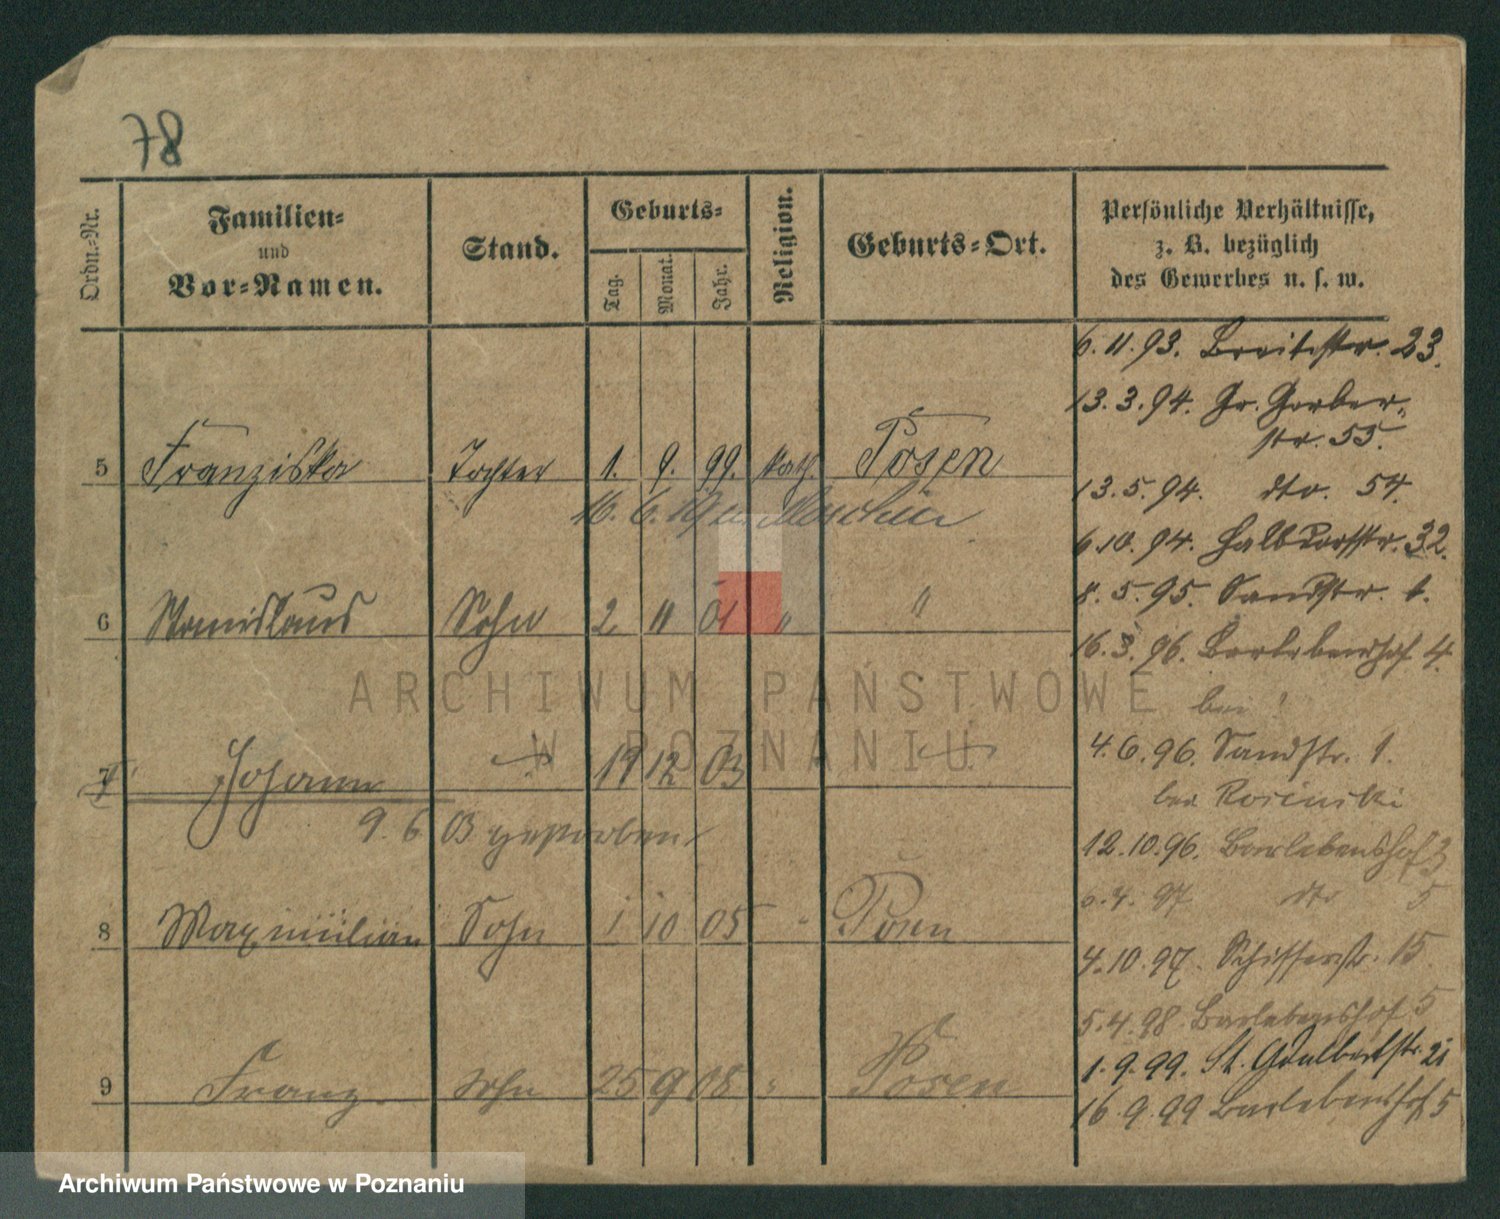 78
Ordn.-Nr.
Familien-
und
Vor-Namen.
Stand.
Geburts-
Tag.
Monat.
Jahr.
Religion.
Geburts-Ort.
Persönliche Verhältnisse,
z. B. bezüglich
des Gewerbes u. s. w.
6.11.93. Breitestr. 23.
13.3.94. Gr. Gerber-
str. 55.
5 Franziska Tochter 1. 9. 99. kath. Posen
13.5.94. dto. 54.
16. 6. 19
6.10.94. Halbdorfstr. 32.
8.5.95. Sandstr. 1.
6 Stanislaus Sohn 2 11 01 " "
16.3.96. Barlebenshof 4.
bei
4.6.96. Sandstr. 1.
7 Johann 19 12 03
bei Rosinski
9. 6 03 gestorben
12.10.96. Barlebenshof 3
6.4. 97 dto 5
8 Maximilian Sohn 1 10 05 " Posen
4.10.97. Schifferstr. 15.
5.4.98. Barlebenshof 5
1.9.99. St. Adalbertstr. 21
9 Franz. Sohn 25 9 08 " Posen
16.9.99 Barlebenshof 5
ARCHIWUM PAŃSTWOWE
W POZNANIU
Archiwum Państwowe w Poznaniu